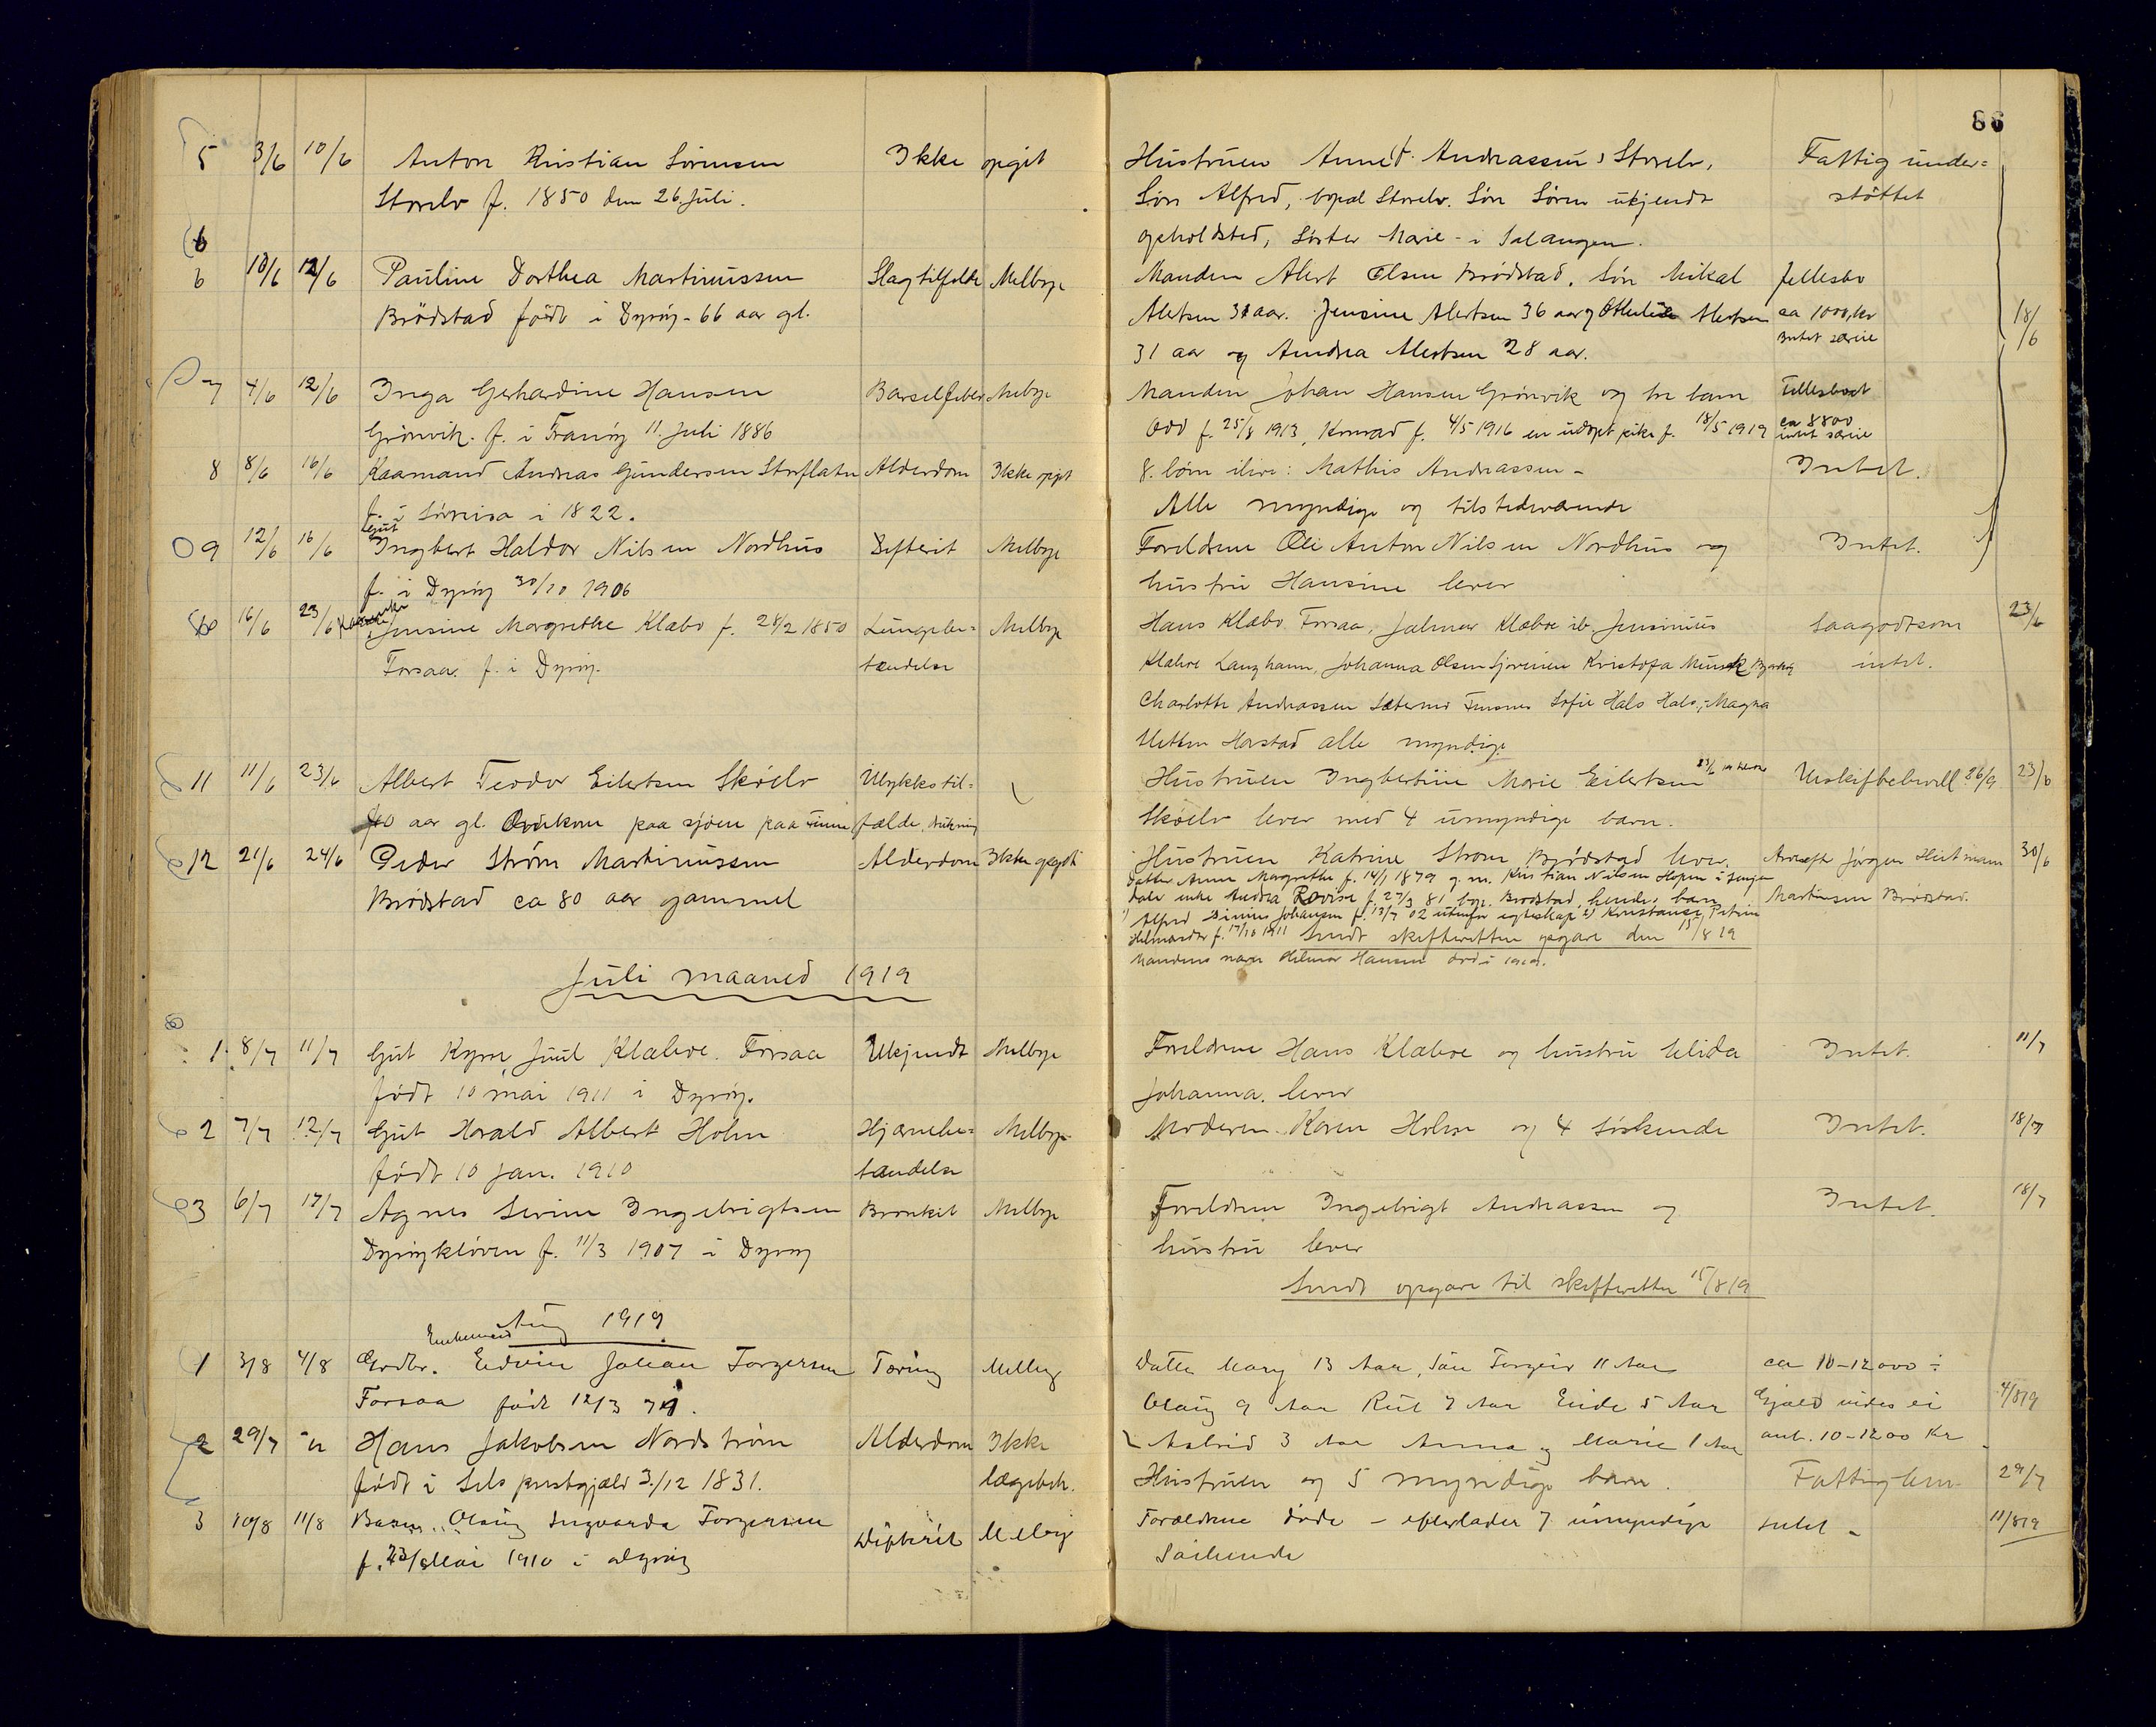 86
5 3/6 10/6 Anton Kristian Sörensen Ikke opgit Hustruen Anne f. Andreassen, Storelv, Fattig under=
Storelv f. 1850 den 26. Juli. Sön Alfred, bopæl Storelv. Sön Sören ukjendt støttet
6 opholdsted, Söster Marie i Salangen.
6 10/6 12/6 Pauline Dorthea Martinussen Slagtilfelde Melbye Manden Alert Olsen Brödstad. Sön Mikal Fellesbo
Brödstad födt i Dyröy - 66 aar gl. Alertsen 31 aar. Jensine Alertsen 36 aar og Alertsen ca 1000 kr
31 aar og Andrea Alertsen 28 aar. Intet særeie 18/6
7 4/6 12/6 Inga Gerhardine Hansen Barselfeber Melbye Manden Johan Hansen Grönvik og tre barn Fellesboet
Grönvik. f. i Tranöy 11 Juli 1886 Odd f. 25/8 1913, Konrad f. 4/5 1916 en udöpt pike f. 18/5 1919 ca 8800 intet særeie
8 8/6 16/6 Kaarmand Andreas Gundersen Storflaten Alderdom Ikke opgit 8 börn ilive: Mathis Andreassen - Intet.
f. i Sörreisa i 1822. Alle myndige og tilstedeværende
9 12/6 16/6 Gut Ingbert Haldor Nilsen Nordhus Difterit Melbye Foreldrene Ole Anton Nilsen Nordhus og Intet.
f. i Dyröy 30/10 1906 hustru Hansine lever
10 16/6 23/6 Jensine Margrethe Klæbo f. 28/2 1850 Lungebe= Melbye Hans Klæbo Forsaa, Jalmar Klæboe ib. Jensinius Saagodtsom 23/6
Forsaa. f. i Dyröy. tændelse Klæboe Langhamn, Johanna Olsen Kristofa Munk intet.
Charlotte Andreassen Finsnes Sofie Hals Hals, Magna
Harstad alle myndige
11 11/6 23/6 Albert Teodor Eilertsen Sköelv Ulykkestil= Hustruen Ingbertine Marie Eilertsen Uskiftebevill. 26/9 23/6
40 aar gl. Omkom paa sjöen paa fælde, drukning Sköelv lever med 4 umyndige barn.
12 21/6 24/6 Peder Ström Martinussen Alderdom Ikke opgit Hustruen Katrine Ström Brödstad lever. Jörgen Hartman 30/6
Brödstad ca 80 aar gammel Datter Anne Margrethe f. 14/1 1879 g. m. Kristian Nilsen i Senjen Martinsen Brödstad.
dater enke Andrea Rovise f. 27/3 81 bop. Brödstad, hendes barn
1) Alfred Johansen f. 13/7 02 utenfor egteskap 2) Konstanse Petrine
f. 17/10 1911 Sendt skifteretten opgave den 15/8 19
Mandens navn Helmer Hansen död i 1919.
Juli maaned 1919
1. 8/7 11/7 Gut Kyrre Juul Klæboe. Forsaa Ukjendt Melbye Foreldrene Hans Klæboe og hustru Elida Intet. 11/7
födt 10 mai 1911 i Dyröy. Johanna. lever
2 7/7 12/7 Gut Harald Albert Holm Hjernebe= Melbye Moderen Karen Holm og 4 söskende Intet. 18/7
födt 10 jan. 1910 tændelse
3 6/7 17/7 Agnes Serine Ingebrigtsen Bronkit Melbye Foreldrene Ingebrigt Andreassen og Intet. 18/7
Dyröyklöven f. 11/3 1907 i Dyröy hustru lever
Sendt opgave til skifteretten 15/8 19
Aug 1919
Enkemand
1 3/8 4/8 Grdbr. Edvin Johan Torgersen Tæring Melbye Datter Mary 13 Aar, Sön Torgeir 11 Aar ca 10-12000 ÷
Forsaa födt 12/3 71. Olaug 9 Aar Rut 7 Aar Eide 5 Aar Gjæld vides ei 4/8 19
2 29/7 Hans Jakobsen Nordström Alderdom Ikke Astrid 3 Aar Anna og Marie 1 Aar ant. 10-1200 Kr
födt i Sels prestgjæld 3/12 1831. lægebeh. Hustruen og 5 myndige barn. Fattiglem 29/7
3 10/8 11/8 Barn Olaug Ingvarda Torgersen Difterit Melbye Foræeldrene döde - efterlader 7 umyndige Intet - 11/8 19
f. 23/ Mai 1910 i Dyröy Söskende